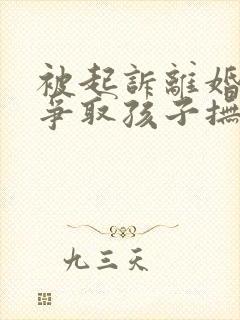 被起訴離婚
爭取孩子撫
九三天